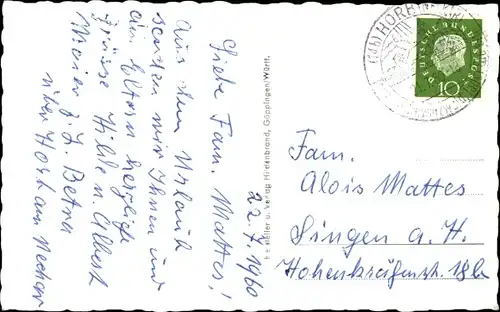 22. 7. 1960
Liebe Fam. Mattes!
Aus dem Urlaub
senden wir Ihnen und
den Eltern herzliche
Grüsse Hilde u. Albert
Maier z. Zt. Betra
über Horb am Neckar
Hersteller u. Verlag Hirdenbrand, Göppingen/Württ.
HORB
DEUTSCHE BUNDESPOST
10
Fam.
Alois Mattes
Singen a. H.
Hohenkräfenstr. 18b